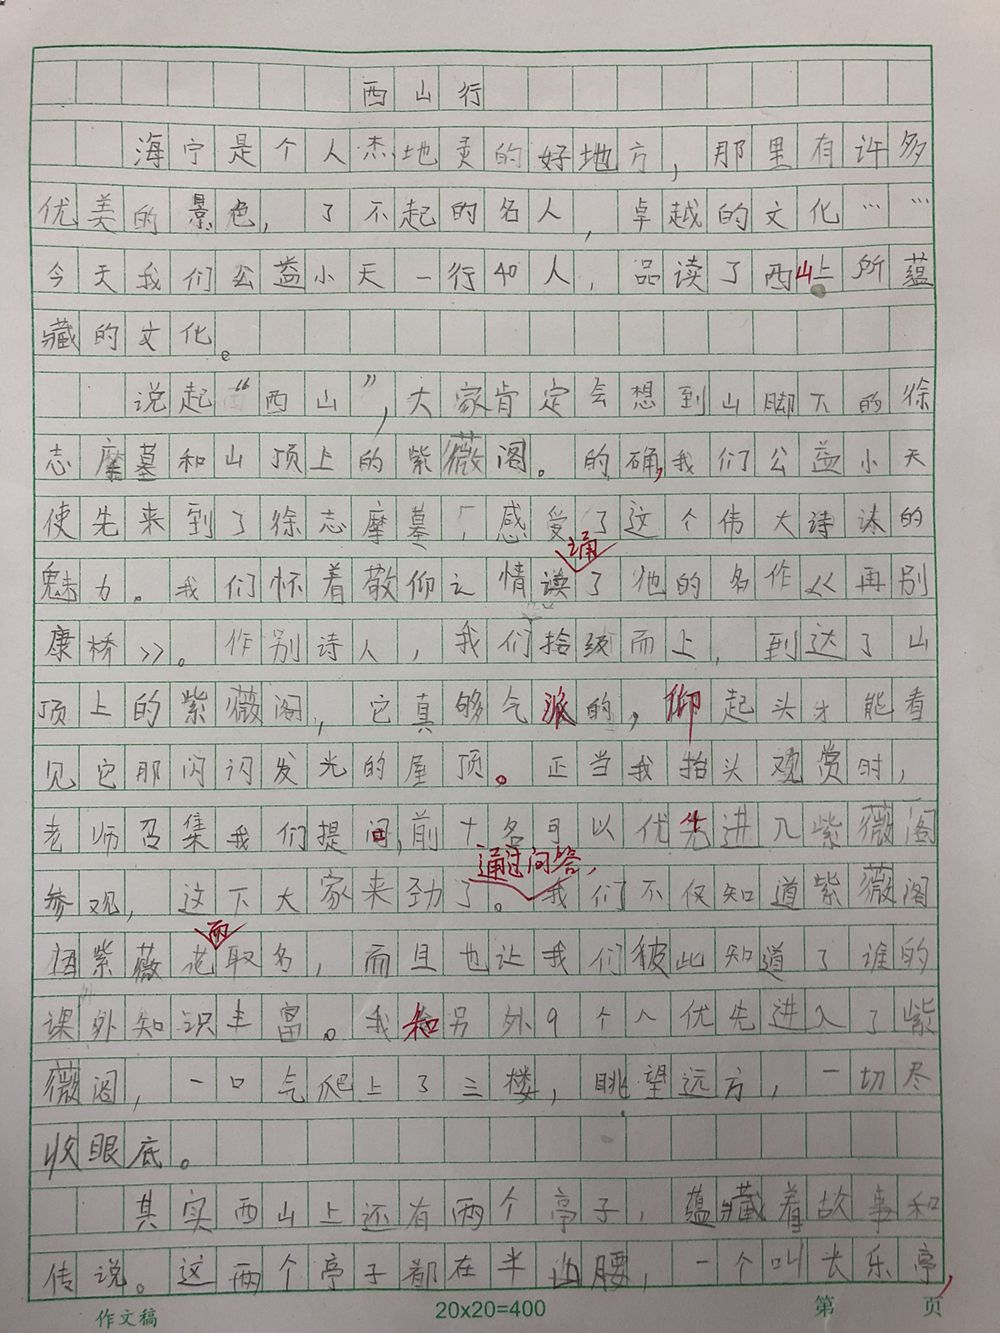 西山行
海宁是个人杰地灵的好地方，那里有许多
优美的景色，了不起的名人，卓越的文化……
今天我们公益小天一行40人，品读了西山上所蕴
藏的文化。
说起“西山”，大家肯定会想到山脚下的徐
志摩墓和山顶上的紫薇阁。的确，我们公益小天
使先来到了徐志摩墓，感受了这个伟大诗
的
诵
魅力。我们怀着敬仰之情读了他的名作《再别
康桥》。作别诗人，我们拾级而上，到达了山
顶上的紫薇阁，它真够气派的，仰起头才能看
见它那闪闪发光的屋顶。正当我抬头观赏时，
老师召集我们提问，前十名可以优先进入紫薇阁
通过问答，
参观，这下大家来劲了。我们不仅知道紫薇阁
而
紫薇花取名，而且也让我们彼此知道了谁的
课外知识丰富。我和另外9个人优先进入了紫
薇阁，一口气爬上了三楼，眺望远方，一切尽
收眼底。
其实西山上还有两个亭子，蕴藏着故事和
传说。这两个亭子都在半山腰，一个叫长乐亭，
作文稿 20x20=400 第 页